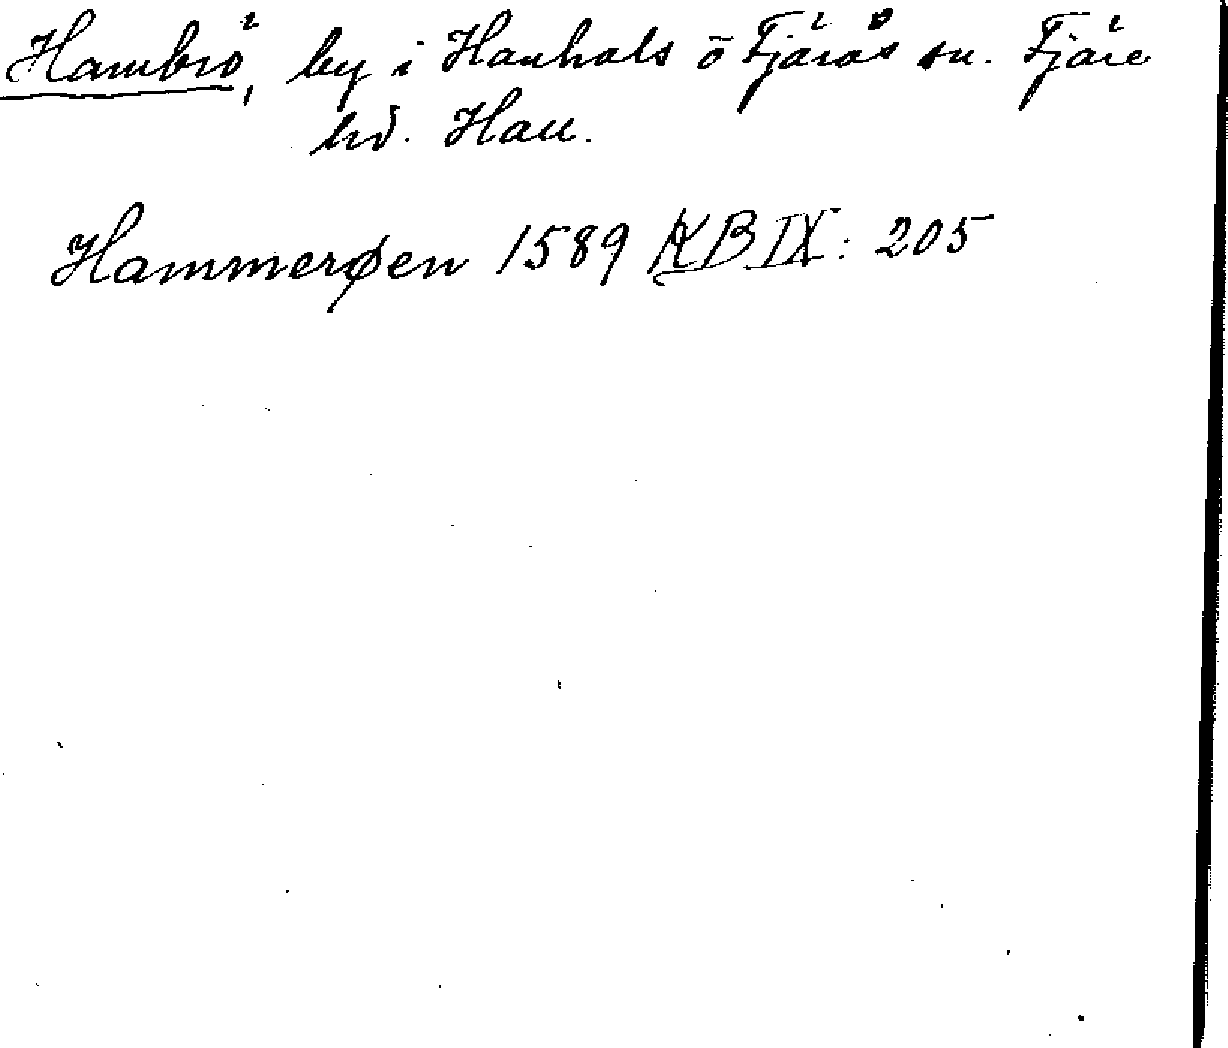 Hambrö, by i Hanhals o Fjärås sn. Fjäre
hd. Hall.
Hammerøen 1589 KB IX: 205